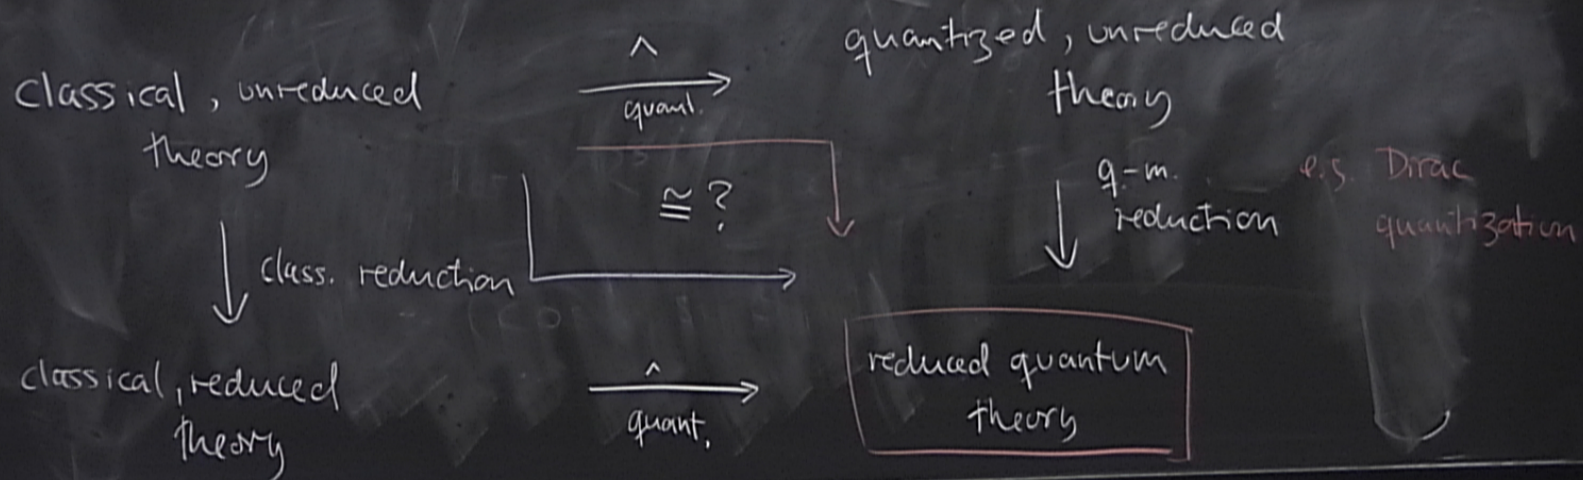 classical, unreduced
theory
^
quant.
quantized, unreduced
theory
≅ ?
q.-m.
reduction
e.g. Dirac
quantization
class. reduction
classical, reduced
theory
^
quant.
reduced quantum
theory